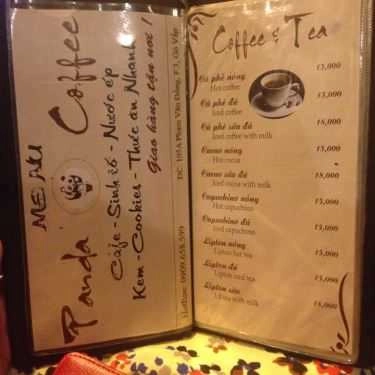 MENU
Panda Coffee
Cafe - Sinh tố - Nước ép
Kem - Cookies - Thức ăn Nhanh
Giao hàng tận nơi !
ĐC: 105A Phạm Văn Đồng, F3, Gò Vấp
Hotline: 0909.658.599
Coffee & Tea
Cà phê nóng 15,000
Hot coffee
Cà phê đá 15,000
Iced coffee
Cà phê sữa đá 18,000
Iced coffee with milk
Cacao nóng 15,000
Hot cocoa
Cacao sữa đá 18,000
Iced cocoa with milk
Capuchino nóng 15,000
Hot capuchino
Capuchino đá 15,000
Iced capuchino
Lipton nóng 15,000
Lipton hot tea
Lipton đá 15,000
Lipton iced tea
Lipton sữa 18,000
Lipton with milk